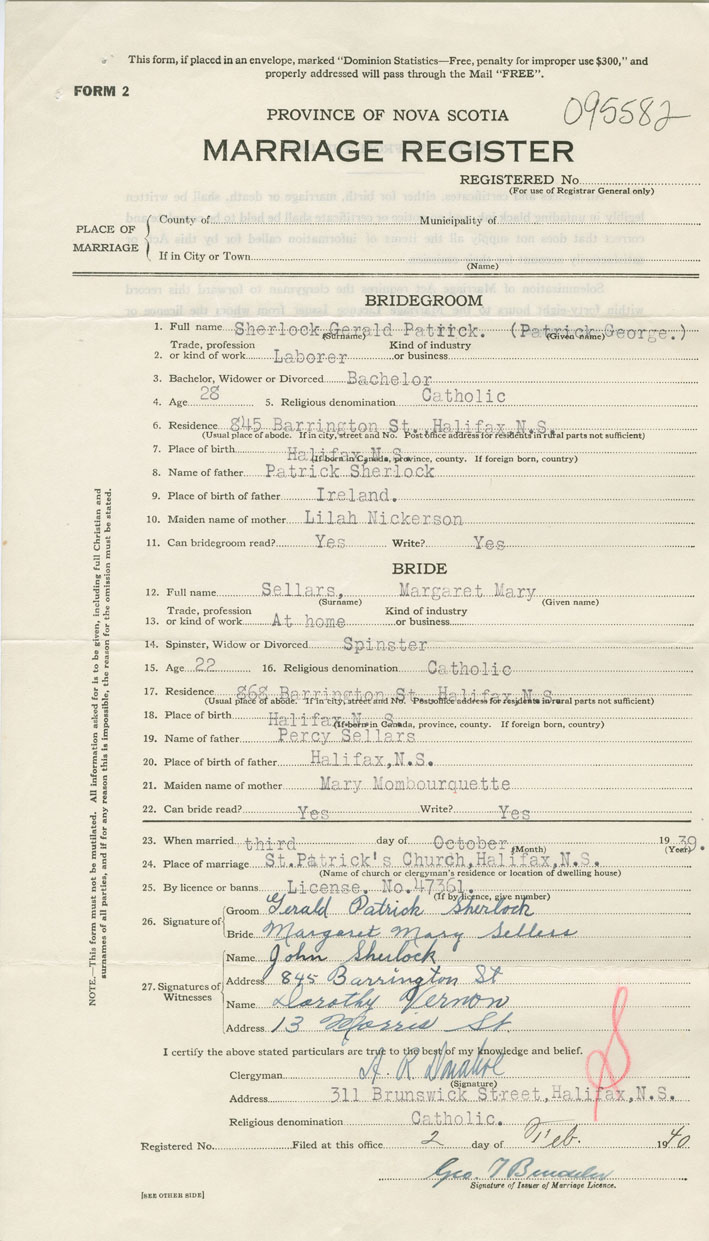 This form, if placed in an envelope, marked "Dominion Statistics—Free, penalty for improper use $300," and
properly addressed will pass through the Mail "FREE".
FORM 2
095582
PROVINCE OF NOVA SCOTIA
MARRIAGE REGISTER
REGISTERED No.
(For use of Registrar General only)
PLACE OF MARRIAGE
County of Municipality of
If in City or Town
(Name)
BRIDEGROOM
1. Full name Sherlock Gerald Patrick. (Patrick George.)
(Surname) (Given name)
Trade, profession Kind of industry
2. or kind of work Laborer or business
3. Bachelor, Widower or Divorced Bachelor
4. Age 28 5. Religious denomination Catholic
6. Residence 845 Barrington St. Halifax N.S.
(Usual place of abode. If in city, street and No. Post office address for residents in rural parts not sufficient)
7. Place of birth Halifax N.S.
(If born in Canada, province, county. If foreign born, country)
8. Name of father Patrick Sherlock
9. Place of birth of father Ireland.
10. Maiden name of mother Lilah Nickerson
11. Can bridegroom read? Yes Write? Yes
BRIDE
12. Full name Sellars, Margaret Mary
(Surname) (Given name)
Trade, profession Kind of industry
13. or kind of work At home or business
14. Spinster, Widow or Divorced Spinster
15. Age 22 16. Religious denomination Catholic
17. Residence 868 Barrington St. Halifax N.S.
(Usual place of abode. If in city, street and No. Post office address for residents in rural parts not sufficient)
18. Place of birth Halifax N. S.
(If born in Canada, province, county. If foreign born, country)
19. Name of father Percy Sellars
20. Place of birth of father Halifax,N.S.
21. Maiden name of mother Mary Mombourquette
22. Can bride read? Yes Write? Yes
23. When married third day of October, 19 39.
(Month) (Year)
24. Place of marriage St.Patrick's Church,Halifax,N.S.
(Name of church or clergyman's residence or location of dwelling house)
25. By licence or banns License. No.47361.
(If by licence, give number)
26. Signature of
Groom Gerald Patrick Sherlock
Bride Margaret Mary Sellers
27. Signatures of Witnesses
Name John Sherlock
Address 845 Barrington St
Name Dorothy Vernon
Address 13 Morris St.
I certify the above stated particulars are true to the best of my knowledge and belief.
Clergyman A. R. Donahoe
(Signature)
Address 311 Brunswick Street,Halifax,N.S.
Religious denomination Catholic.
Registered No. Filed at this office 2 day of Feb. 1940
Geo. T
Signature of Issuer of Marriage Licence.
[SEE OTHER SIDE]
NOTE.—This form must not be mutilated. All information asked for is to be given, including full Christian and
surnames of all parties, and if for any reason this is impossible, the reason for the omission must be stated.